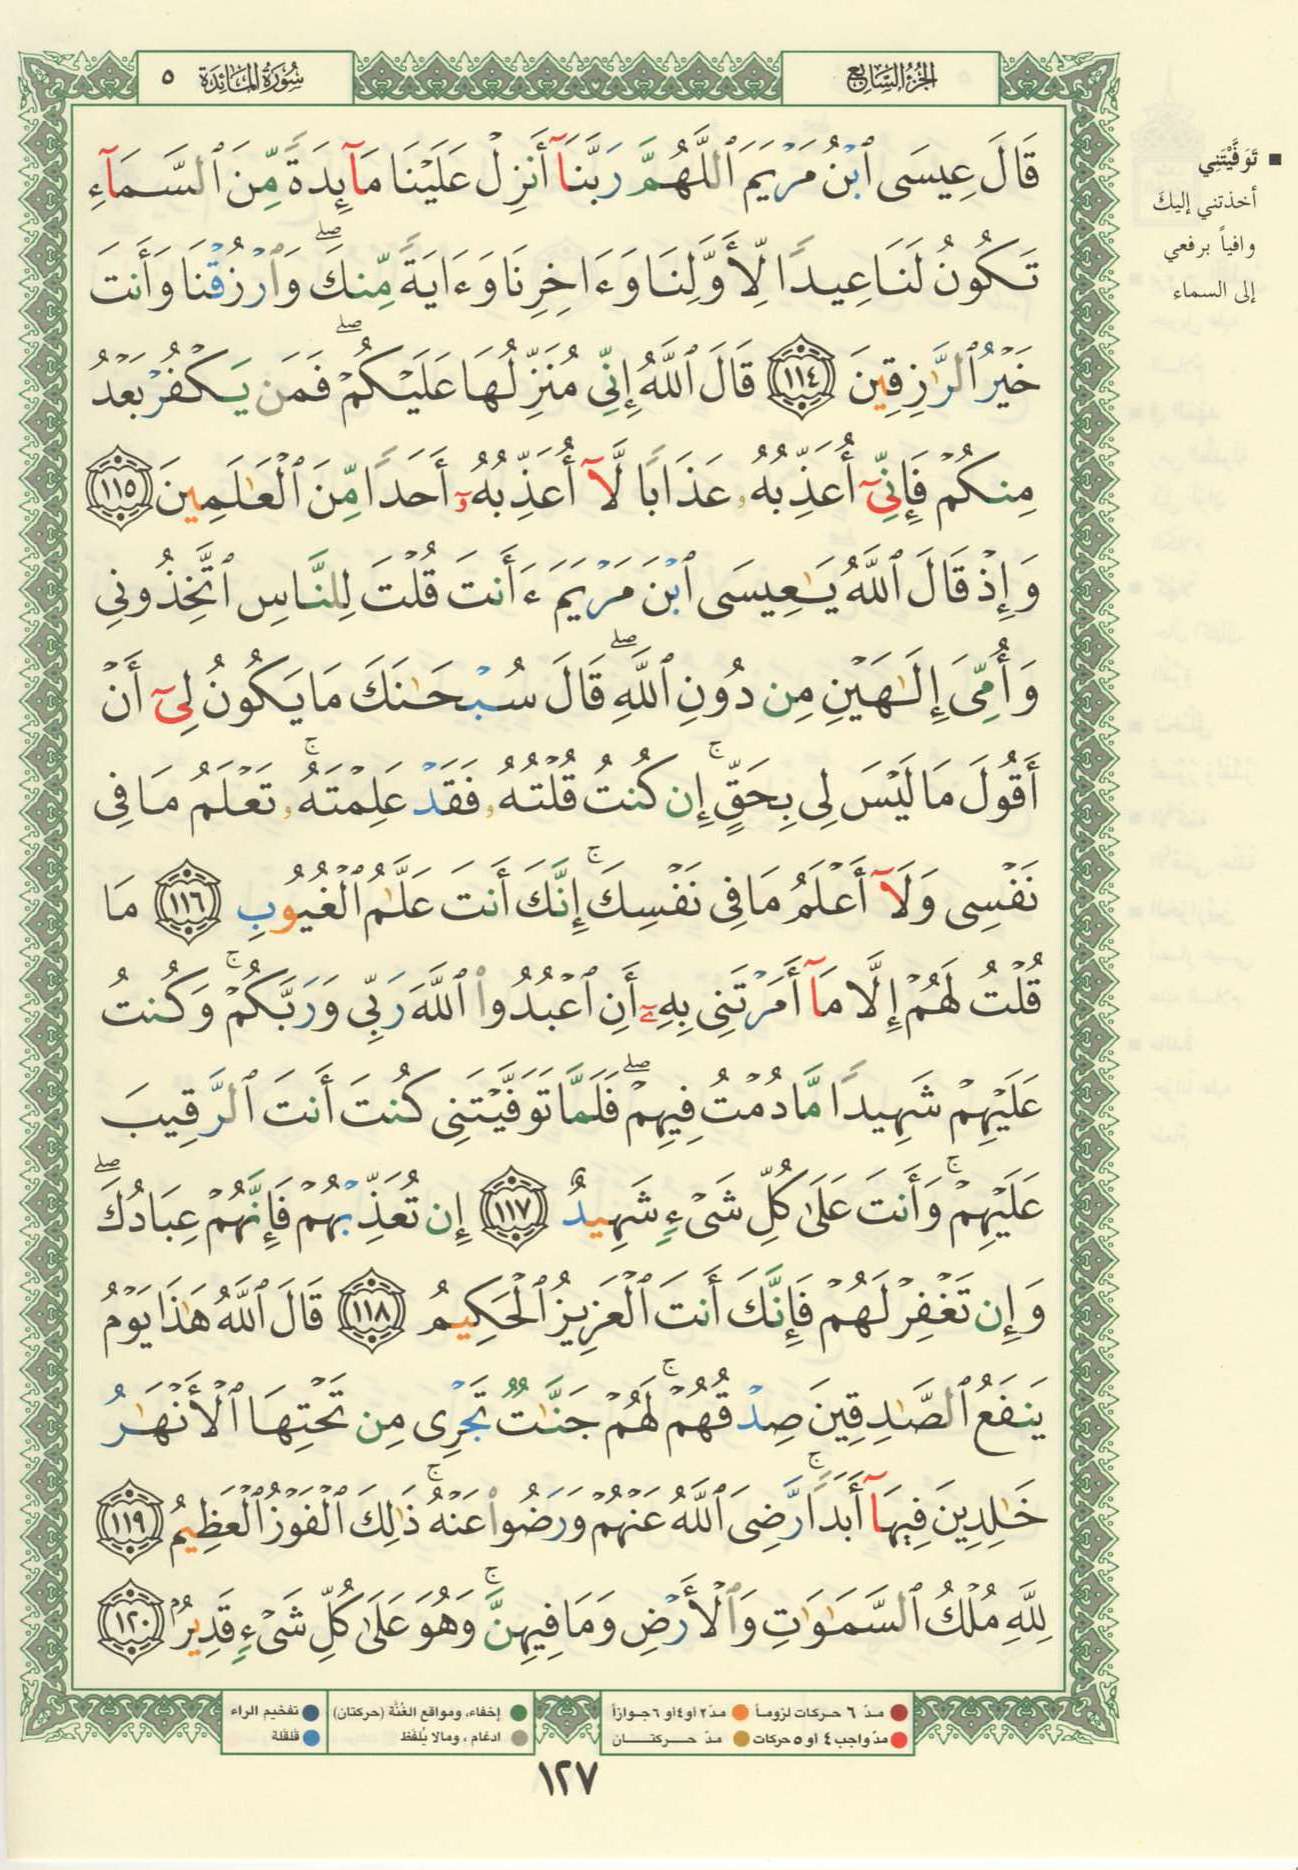 سُورَةُ المَائِدَة ٥
الجُزْءُ السَّابِع
قَالَ عِيسَى ٱبْنُ مَرْيَمَ ٱللَّهُمَّ رَبَّنَآ أَنزِلْ عَلَيْنَا مَآئِدَةً مِّنَ ٱلسَّمَآءِ
تَكُونُ لَنَا عِيدًا لِّأَوَّلِنَا وَءَاخِرِنَا وَءَايَةً مِّنكَ ۖ وَٱرْزُقْنَا وَأَنتَ
خَيْرُ ٱلرَّٰزِقِينَ ١١٤ قَالَ ٱللَّهُ إِنِّى مُنَزِّلُهَا عَلَيْكُمْ ۖ فَمَن يَكْفُرْ بَعْدُ
مِنكُمْ فَإِنِّىٓ أُعَذِّبُهُۥ عَذَابًا لَّآ أُعَذِّبُهُۥٓ أَحَدًا مِّنَ ٱلْعَٰلَمِينَ ١١٥
وَإِذْ قَالَ ٱللَّهُ يَٰعِيسَى ٱبْنَ مَرْيَمَ ءَأَنتَ قُلْتَ لِلنَّاسِ ٱتَّخِذُونِى
وَأُمِّىَ إِلَٰهَيْنِ مِن دُونِ ٱللَّهِ ۖ قَالَ سُبْحَٰنَكَ مَا يَكُونُ لِىٓ أَنْ
أَقُولَ مَا لَيْسَ لِى بِحَقٍّ ۚ إِن كُنتُ قُلْتُهُۥ فَقَدْ عَلِمْتَهُۥ ۚ تَعْلَمُ مَا فِى
نَفْسِى وَلَآ أَعْلَمُ مَا فِى نَفْسِكَ ۚ إِنَّكَ أَنتَ عَلَّٰمُ ٱلْغُيُوبِ ١١٦ مَا
قُلْتُ لَهُمْ إِلَّا مَآ أَمَرْتَنِى بِهِۦٓ أَنِ ٱعْبُدُوا۟ ٱللَّهَ رَبِّى وَرَبَّكُمْ ۚ وَكُنتُ
عَلَيْهِمْ شَهِيدًا مَّا دُمْتُ فِيهِمْ ۖ فَلَمَّا تَوَفَّيْتَنِى كُنتَ أَنتَ ٱلرَّقِيبَ
عَلَيْهِمْ ۚ وَأَنتَ عَلَىٰ كُلِّ شَىْءٍ شَهِيدٌ ١١٧ إِن تُعَذِّبْهُمْ فَإِنَّهُمْ عِبَادُكَ ۖ
وَإِن تَغْفِرْ لَهُمْ فَإِنَّكَ أَنتَ ٱلْعَزِيزُ ٱلْحَكِيمُ ١١٨ قَالَ ٱللَّهُ هَٰذَا يَوْمُ
يَنفَعُ ٱلصَّٰدِقِينَ صِدْقُهُمْ ۚ لَهُمْ جَنَّٰتٌ تَجْرِى مِن تَحْتِهَا ٱلْأَنْهَٰرُ
خَٰلِدِينَ فِيهَآ أَبَدًا ۚ رَّضِىَ ٱللَّهُ عَنْهُمْ وَرَضُوا۟ عَنْهُ ۚ ذَٰلِكَ ٱلْفَوْزُ ٱلْعَظِيمُ ١١٩
لِلَّهِ مُلْكُ ٱلسَّمَٰوَٰتِ وَٱلْأَرْضِ وَمَا فِيهِنَّ ۚ وَهُوَ عَلَىٰ كُلِّ شَىْءٍ قَدِيرٌۢ ١٢٠
تَوَفَّيْتَنِي
أخذتني إليكَ
وافياً برفعي
إلى السماء
مدّ ٦ حركات لزوماً مدّ ٢ أو ٤ أو ٦ جوازاً
مدّ واجب ٤ أو ٥ حركات مدّ حركتان
إخفاء، ومواقع الغُنَّة (حركتان)
ادغام، ومالا يُلفَظ
تفخيم الراء
قلقلة
١٢٧